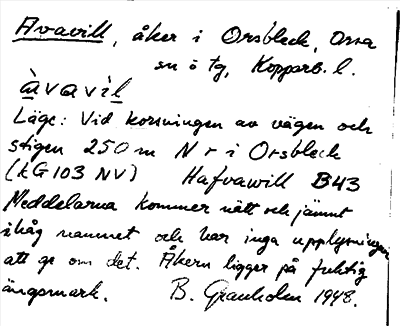 Avavill, åker i Orsbleck, Orsa
sn o tg, Kopparb. l.
àvavìl
Läge: Vid korsningen av vägen och
stigen 250 m N r i Orsbleck
(kG103 NV) Hafvawill B43
Meddelarna kommer nätt och jämnt
ihåg namnet och har inga upplysningar
att ge om det. Åkern ligger på fuktig
ängsmark. B. Granholm 1948.